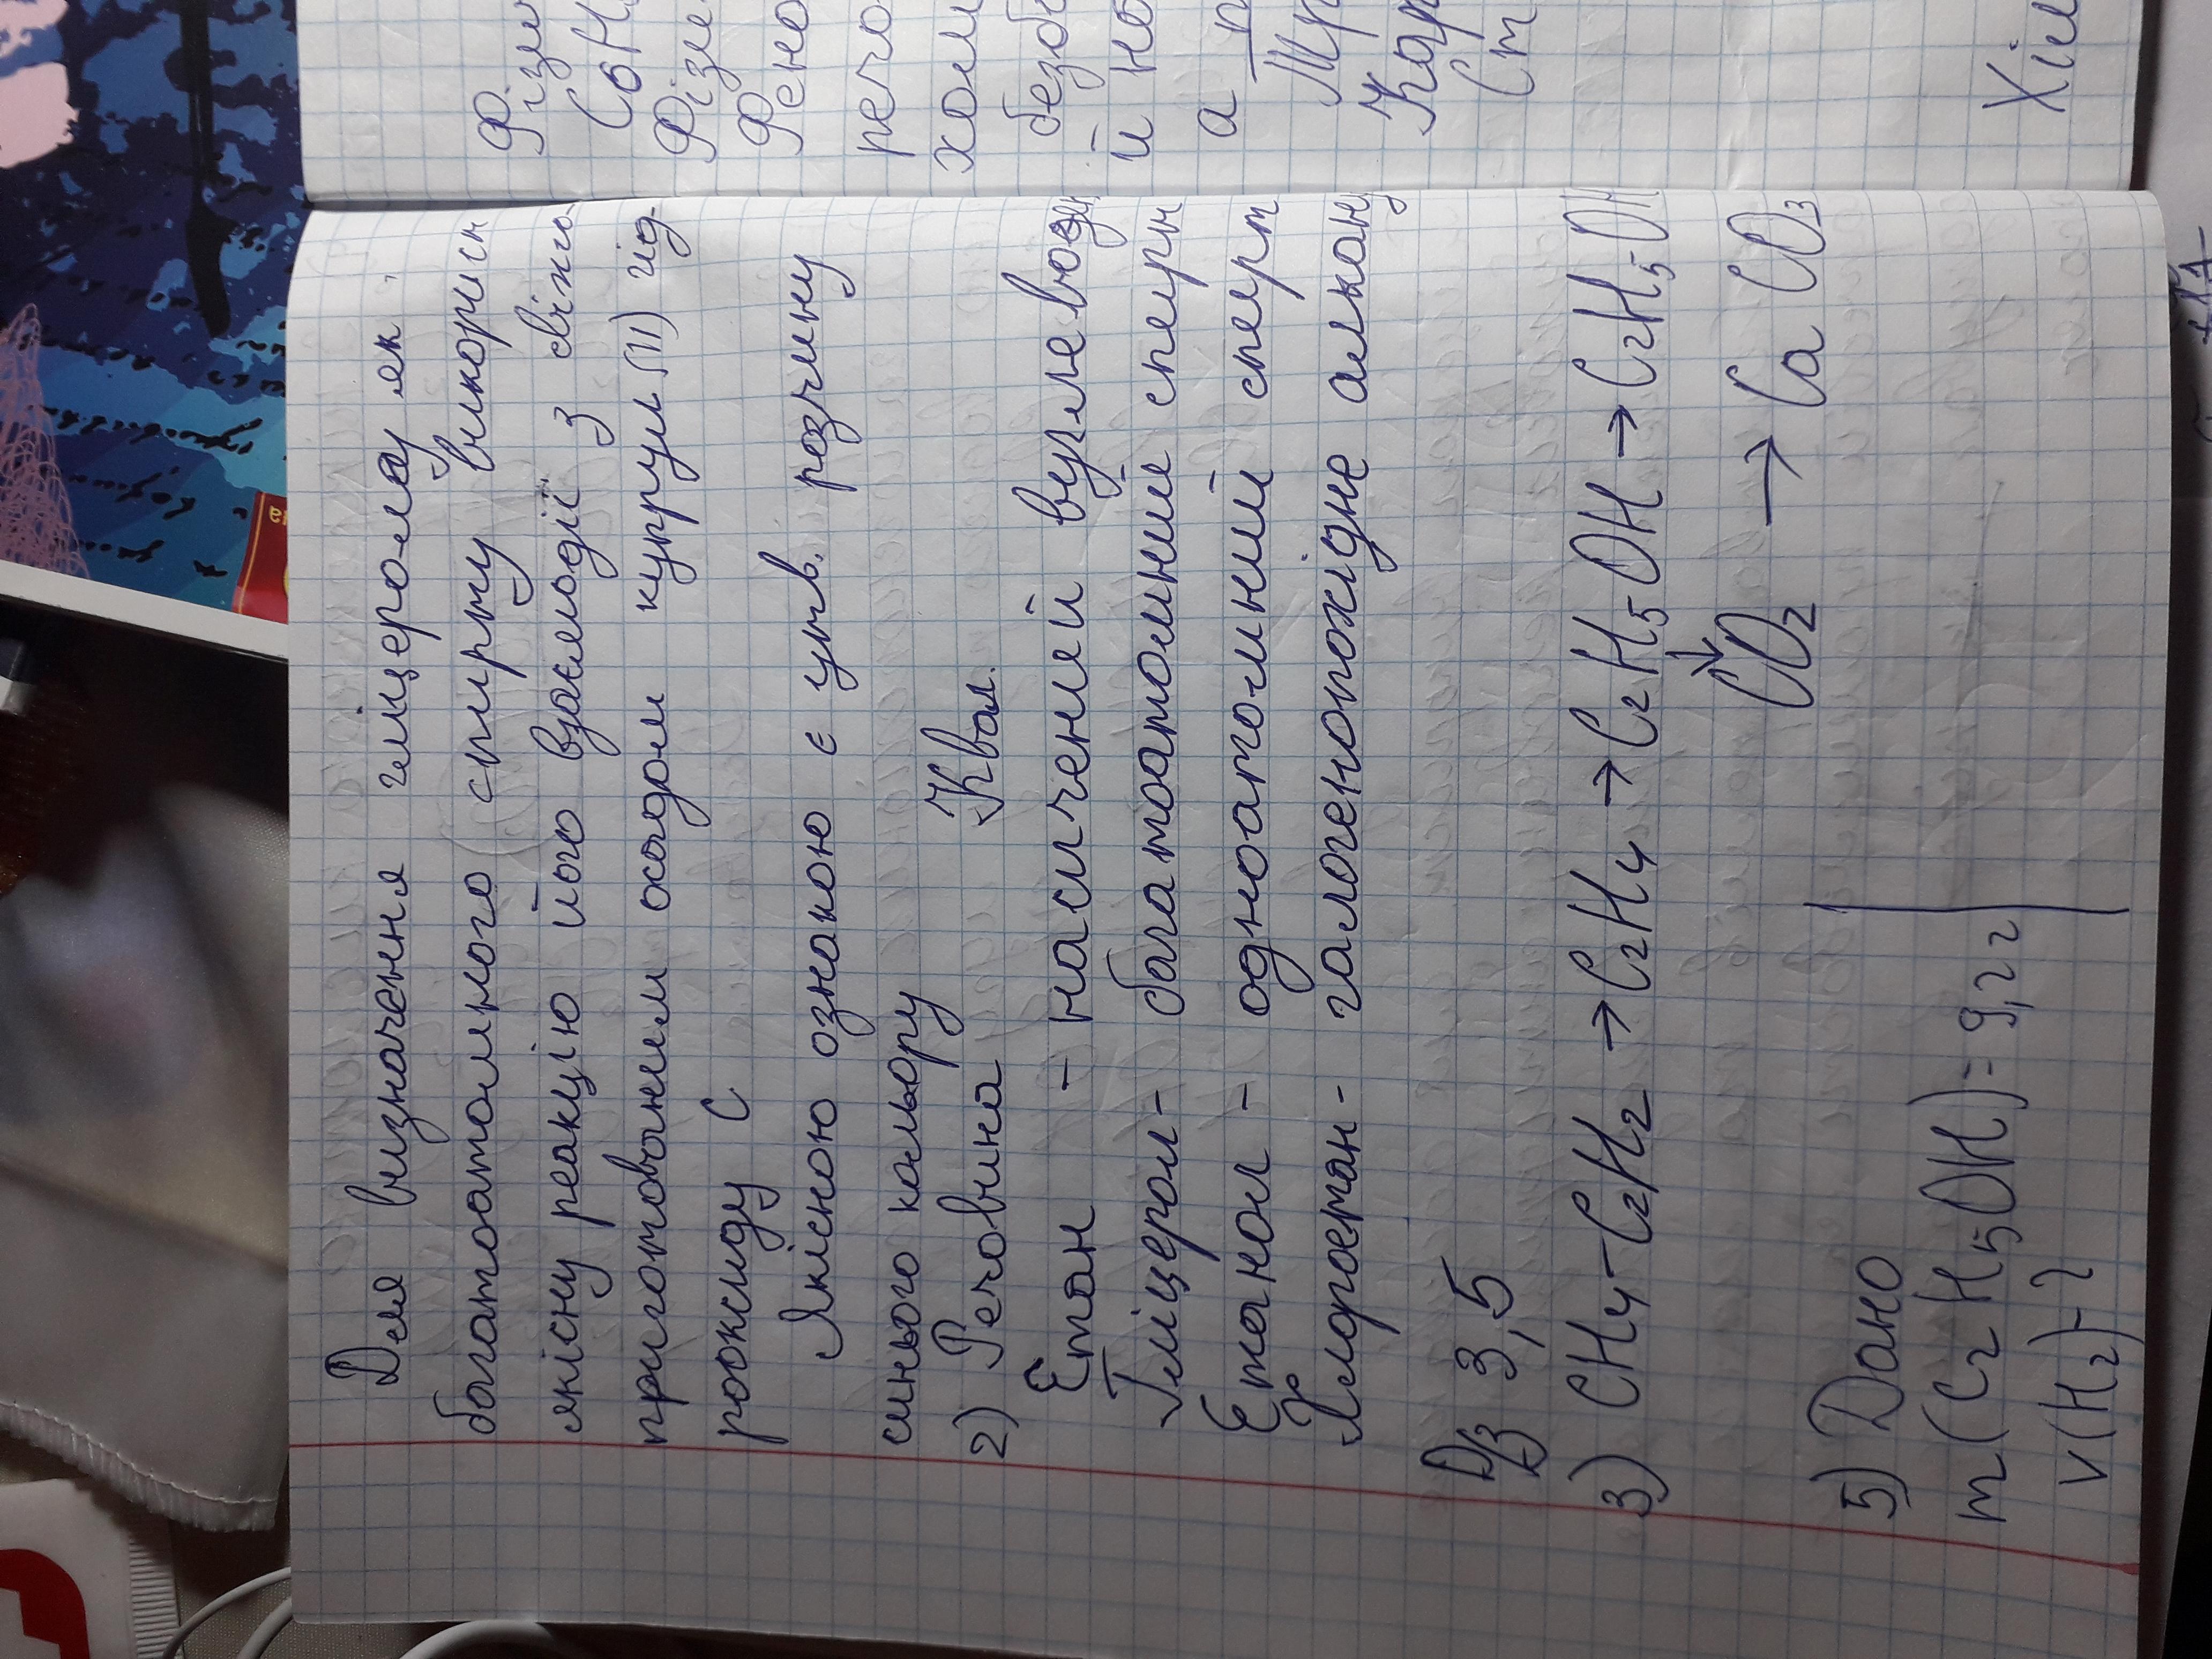 Для визначення гліцеролу як
багатоатомного спирту викорис
якісну реакцію його взаємодії з свіжо
приготовленим осадом купрум (II) гід-
роксиду С
Якісною ознакою є утв. розчину
синього кольору
2) Речовина Квал.
Етан - насичений вуглеводн
Гліцерол - багатоатомний спирт
Етанол - одноатомний спирт
Хлороетан - галогенопохідне алкану
ДЗ 3,5
3) CH4 - C2H2 → C2H4 → C2H5OH → C2H5OH
↓
CO2 → CaCO3
5) Дано
m(C2H5OH) = 9,2г
V(H2) - ?
Фізи
C6H
Фізи
Фено
речо
хол
безб
й но
а п
Тр
Кар
Ст
Хім